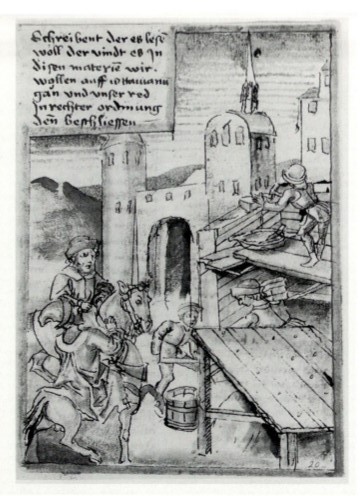 Schreibent der es lese
woll der vindt es In
disen materien wir.
wollen auff
gan und unser red
In rechter ordnung
den beschliessen
20